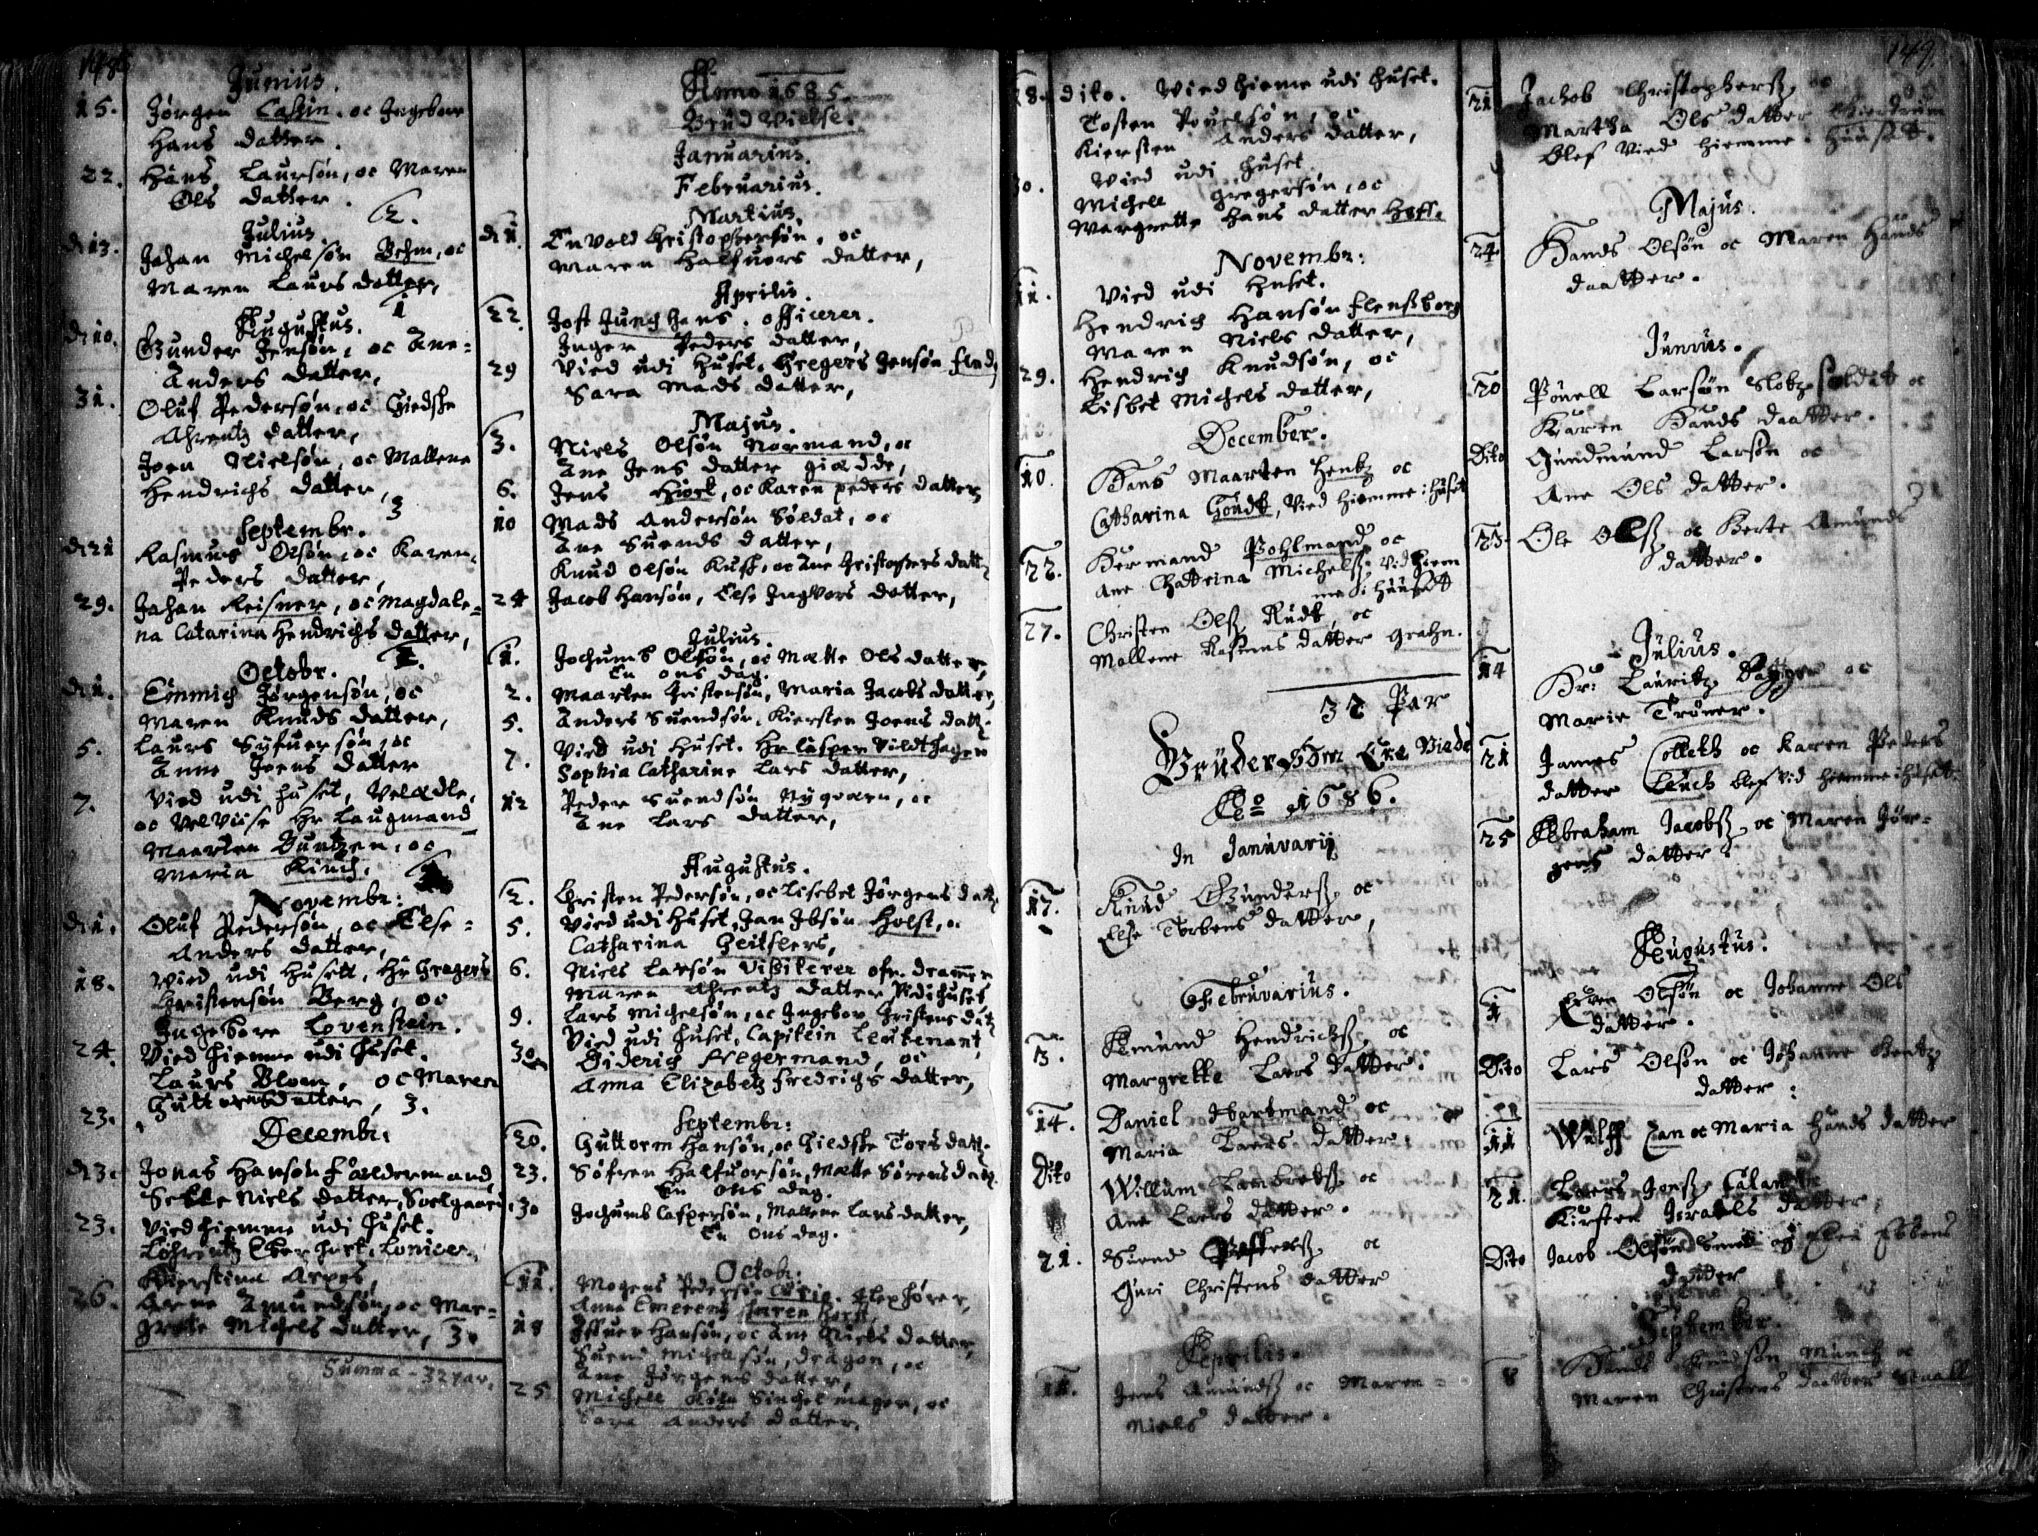 148
Junius.
15. Jørgen Cassin, oc Ingebaar
Hans datter.
22. Hans Laursøn, oc Maren
Ols datter.
2.
Julius.
di 13. Johan Michelsøn Behm, oc
Maren Laurs datter,
1
Augustus.
di 10. Gunder Jensøn, oc Ane=
Anders datter,
31. Oluf Pedersøn, oc Giedske
Ahrentz datter,
Joen Nielsøn, oc Mallene
Hendrichs datter,
3
Septembr.
di 21 Rasmus Olsøn, oc Karen
Peders datter,
29. Johan Reisner, oc Magdale=
na Catarina Hendrichs datter,
2.
Octobr.
di 1. Jørgensøn, oc
Maren Knuds datter,
5. Laurs Syfuersøn, oc
Anne Joens datter
7. Vied udi huset, Velædle,
oc Velviise Hr Laugmand
Maarten, oc
Maria Kinch.
Novembr:
di 1. Oluf Pedersøn, oc Else=
Anders datter,
18. Vied udi Husett, Hr Gregers
Christensøn Berg, oc
Ingebore Lovenstein.
24. Vied hiemme udi huset.
Laurs Bloem, oc Maren
23. Guttormsdatter, 3.
Decembr:
di 3. Jonas Hansøn Fældermand
Niels datter, Soelgaard.
23. Vied hiemme udi huset.
Lohrentz
Kierstina Arpes,
26. Arne Amundsøn, oc Mar=
grete Michels datter, 3.
Summa - 32 par.
Anno 1685.
Brud Vielse.
Januarius.
Februarius.
Martius.
di 1. Envold Christophersøn, oc
Maren Halfuors datter,
Aprilis.
22. Jost Junghans. officerer.
Inger Peders datter,
29 Vied udi Huset. Gregers Jensøn
Sara Mads datter,
Majus.
3. Niels Olsøn Normand, oc
Ane Jens datter giædde,
6. Jens Hiort, oc Karen peders datter,
10 Mads Andersøn Soldat, oc
Ane Suends datter,
Knud Olsøn Kuss, oc Ane Christophers datt:
24 Jacob Hansøn, Else Ingvors datter,
Julius.
1. Jochumb Olsøn, oc Mætte Ols datter,
En ons dag.
2. Maarten Christensøn, Maria Jacobs datter,
5. Anders Suendsøn, Kiersten Joens datt:
7. Vied udi Huset. Hr Casper Vildthagen
Sophia Catharine Lars datter,
12 Peder Suendsøn Nygaarn, oc
Ane Lars datter,
Augustus.
2. Christen Pedersøn, oc Lisebet Jørgens datt:
5. Vied udi Huset, Jan Jbsøn Holst, oc
Catharina
6. Niels Larsøn Visiterer ofr. drammen
Maren Ahrentz datter, Vedi huset
9. Lars Michelsøn, oc Ingebor Christens datt:
Vied udi huset, Capitein Leutenant
30 Diderich Fregermand, oc
Anna Elizabetz Fredrichs datter,
Septembr:
20. Guttorm Hansøn, oc Giedske Tors datt:
23. Søfren Halfuorsøn, Mætte Sørens datt:
En ons dag.
30 Jochumb Caspersøn, Mallene Lars datter,
En ons dag.
Octobr:
11. Mogens Pedersøn Klockører,
Anna
18 Hansøn, oc Ane Niels datter,
Suend Michelsøn, dragon, oc
Ane Jørgens datter,
25 Michell, oc
Sara Anders datter.
28. dito. Vied hieme udi huset.
Tosten Pouelsøn, oc
Kiersten Anders datter,
Vied udi huset
30. Michell Gregersøn, oc
Margrette Hans datter Hoff.
Novembr:
11. Vied udi Huset.
Hendrich Hansøn Flensborg
Maren Niels datter,
29. Hendrich Knudsøn, oc
Lisbet Michels datter,
December.
10. Hans Maarten Hentz oc
Catharina Goudt, vied hiemme i huset
22. Hermand Pohlmand, oc
Ane Chattrina Michelsz. Vid hiem
me i huusett
27. Christen Olsz Rudt, oc
Mallene Rasmus datter Grahn.
32 Par
Brüder som Ere Viede
Ao 1686.
In Januvarij
17. Knud Gundersz, oc
Else Torbens datter,
Februvarius.
3. Amund Hendrichsz, oc
Margrette Laers datter.
14. Daniel Hartmand oc
Maria Laers datter.
Dito Willum Lambretsz, oc
Ane Laers datter.
21. Suend oc
Guri Christens datter
Aprilis.
11. Jens Amundsz oc Maren=
Niels datter.
149.
21 Jachob Christophersz, oc
Martha Ols datter
Blef Vied hiemme i Huuset.
Majus.
24. Hands Olsøn oc Maren Hands
daatter.
Junius.
20 Pouell Larsøn Slotz soldat oc
Karen Hands daatter.
Dito Gundmund Larsøn oc
Ane Ols datter.
23. Ole Olsz oc Berte Amunds
datter.
Julius.
14 Hr: Lauritz oc
Marie Trøner.
21 James Colleth oc Karen Peders
datter Leuch blef Vid hiemme i Huset.
25 Abraham Jacobsz, oc Maren Jør=
gens datter.
Augustus.
1 Even Olsøn oc Johanne Ols
datter.
Dito Lars Olsøn oc Johanne Bentz
datter:
11 Wulff Can oc Maria Hands datter
21. Laers Jensz
Kirsten Israels datter,
Dito Jacob Olsøn Smed og Elen Ebbens
datter
September.
8 Hands Knudsøn Münch oc
Maren Christens daatter